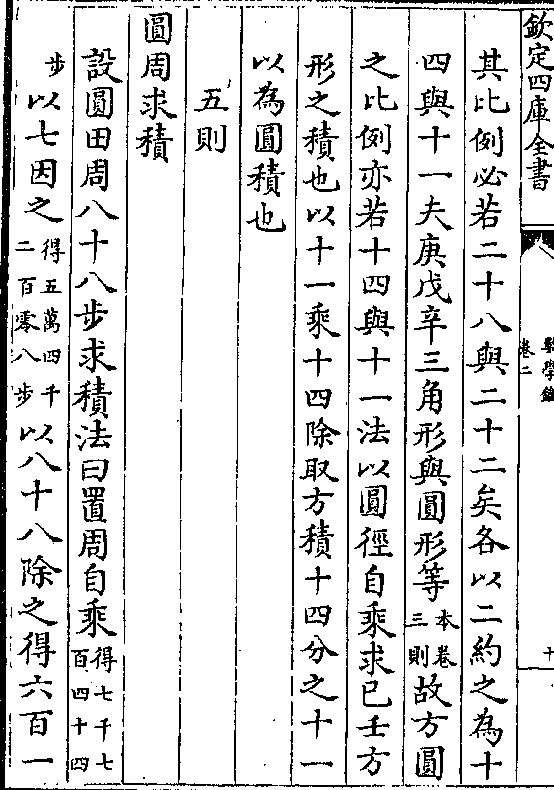 欽定四庫全書
卷二
其比例必若二十八與二十二矣各以二約之為十
四與十一夫庚戊辛三角形與圓形等本卷三則故方圓
之比例亦若十四與十一法以圓徑自乘求巳壬方
形之積也以十一乘十四除取方積十四分之十一
以為圓積也
五則
圓周求積
設圓田周八十八步求積法曰置周自乘得七千七百四十四
步以七因之得五萬四千二百零八步以八十八除之得六百一